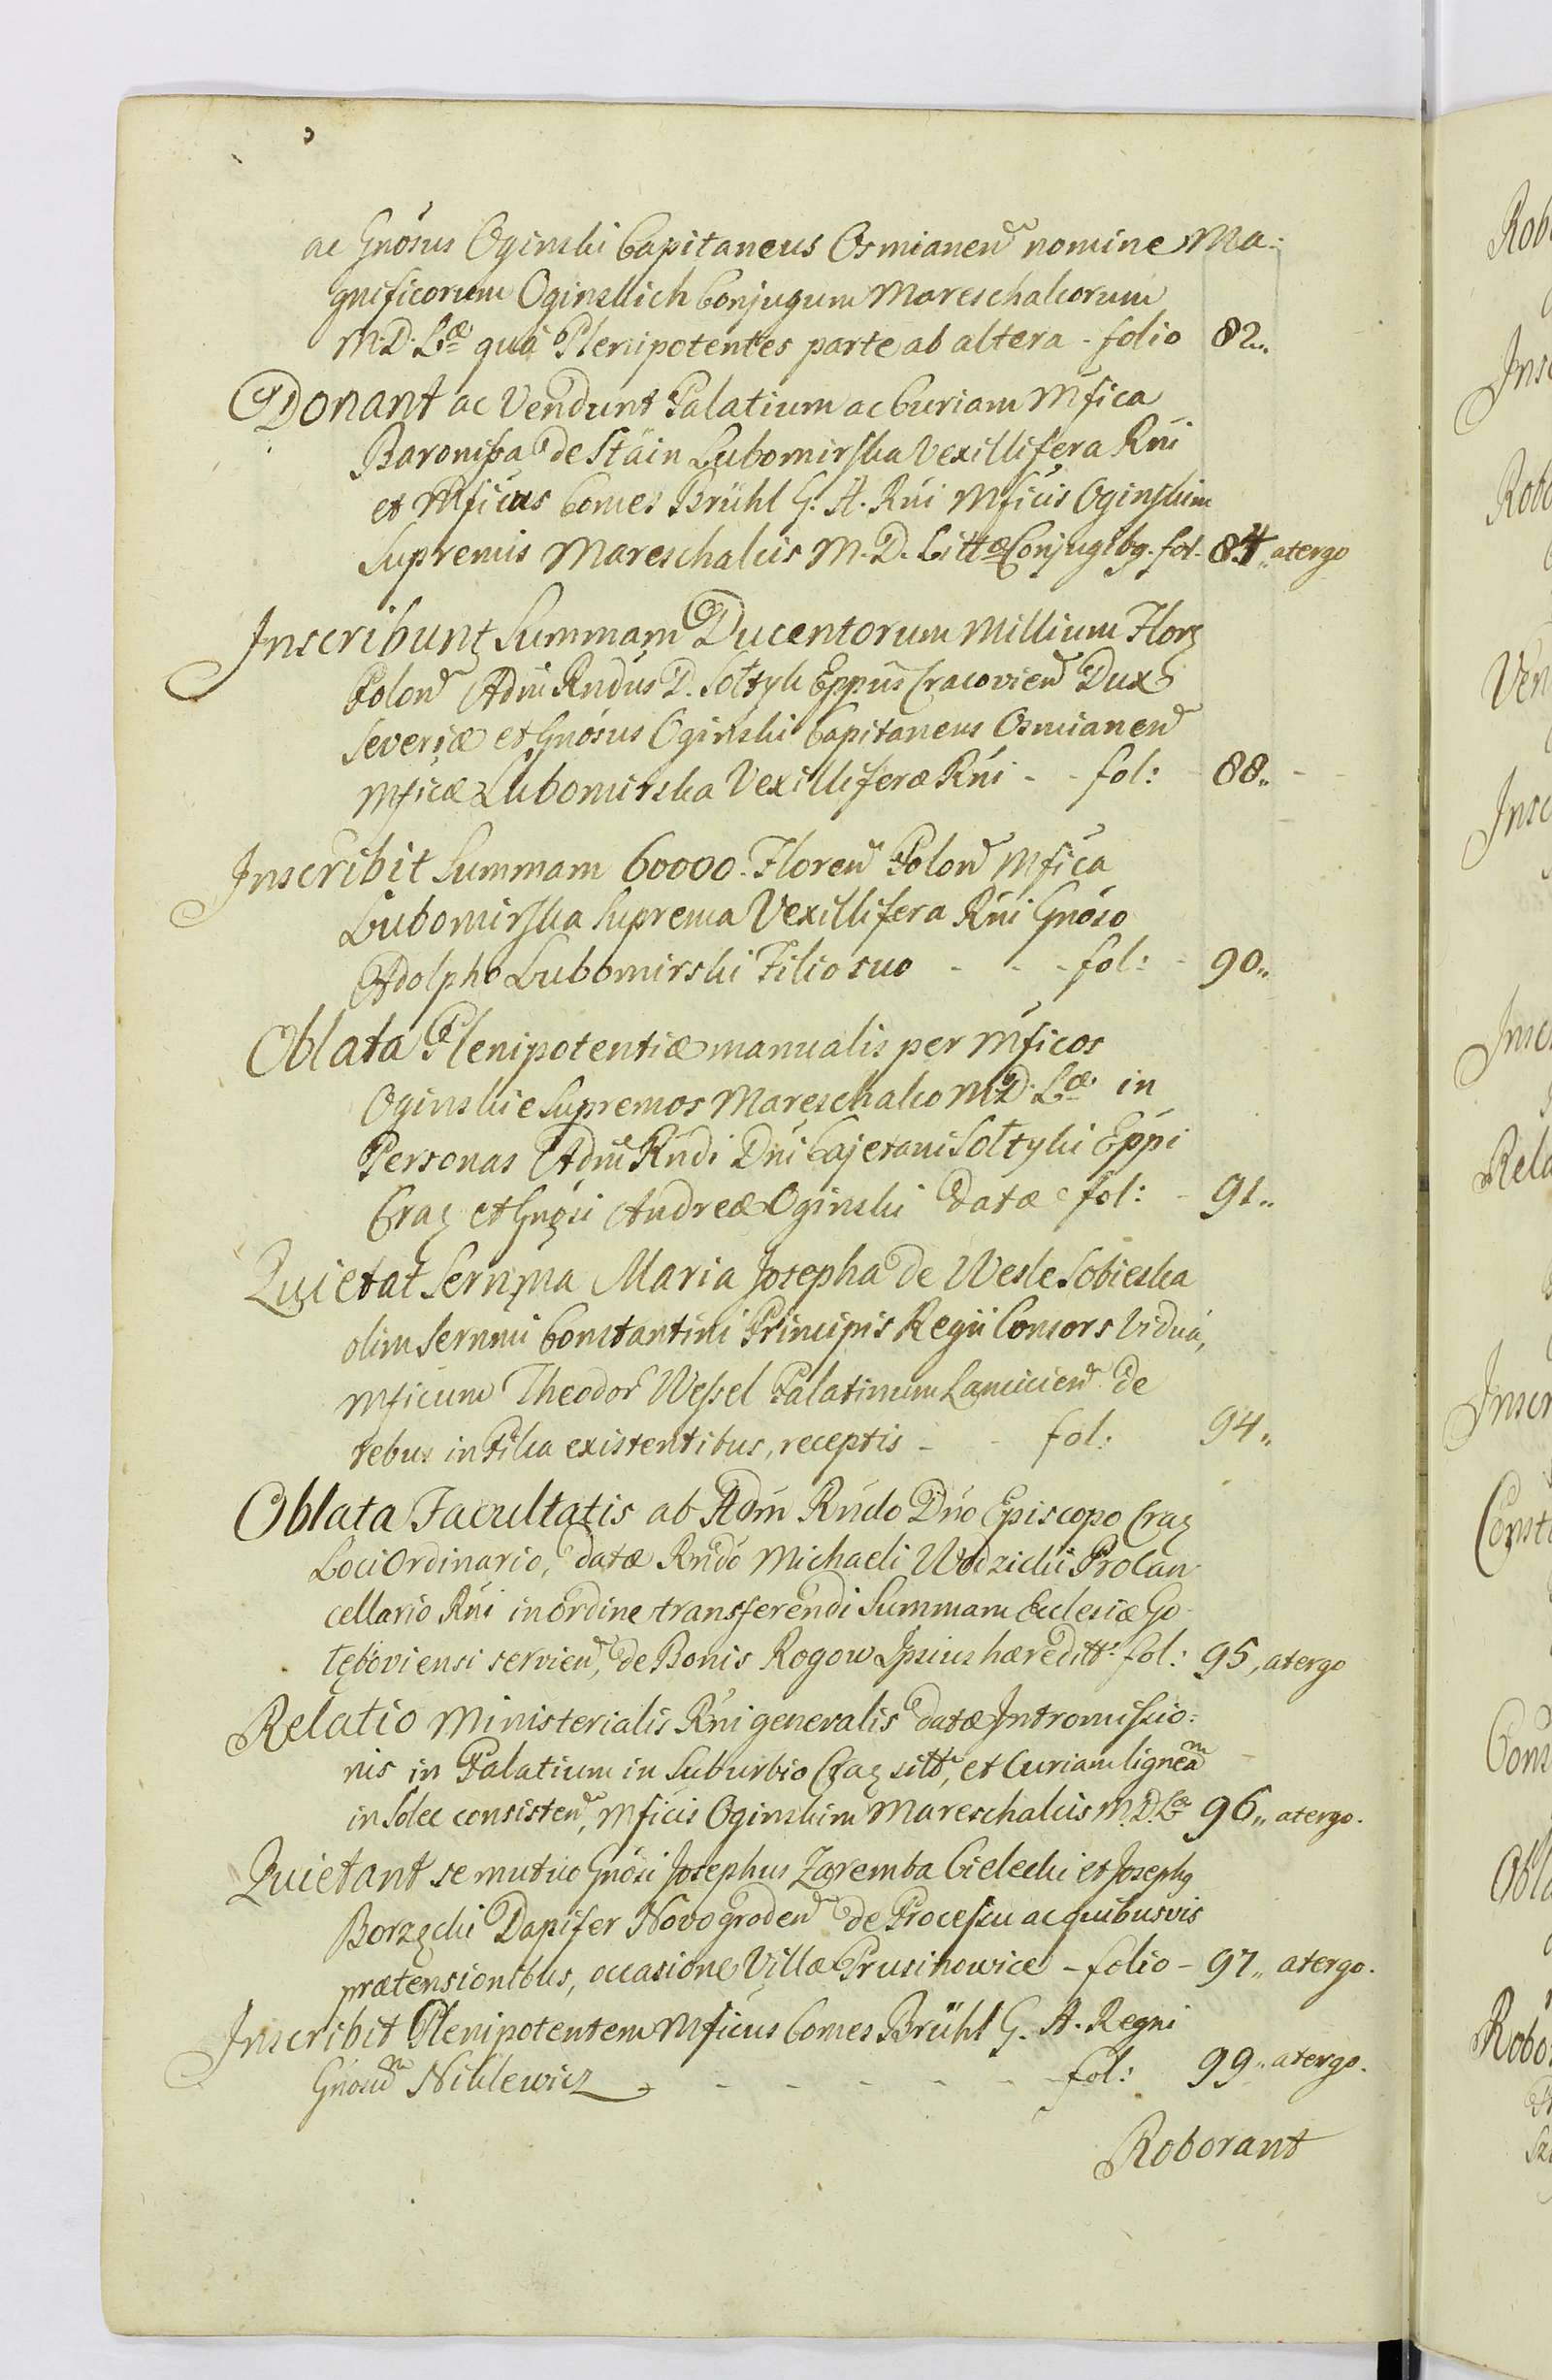 ac Gnosus Oginski Capitaneus Osmianen nomine Ma:
gnificorum Oginskich Conjugum Mareschalcorum
M. D. Læ quá Plenipotentes parte ab altera - folio 82..
Donant ac Vendunt Palatium ac Curiam Mfica
Baronißa de Stäin Lubomirska Vexillifera Rni
et Mficus Comes Brühl G. A. Rni Mficis Oginskim
Supremis Mareschalcis M. D. Littæ Conjugibg. fol. 84,, atergo
Inscribunt Summam Ducentorum Millium Flor
Polon Adm Rndus D. Sołtyk Eppus Cracovien Dux
Severiæ et Gnosus Oginski Capitaneus Osmianen
Mficæ Lubomirska Vexilliferæ Rni - - fol: - 88,, -
Inscribit Summam 60000. Floren Polon Mfica
Lubomirska Suprema Vexillifera Rni Gnoso
Adolpho Lubomirski Filio suo - - - fol: - 90,,
Oblata Plenipotentiæ manualis per Mficos
Oginskie Supremos Mareschalco M. D. Læ in
Personas Adm Rndi Dni Cajetani Sołtyki Eppi
Crac et Gnosi Andreæ Oginski datæ fol: - 91..
Quietat Sernma Maria Josepha de Wesle Sobieska
olim Sernmi Constantini Principis Regii Consors Vidua,
Mficum Theodor Weßel Palatinum Lancicien de
rebus in Pilica existentibus, receptis - - fol: 94,,
Oblata Facultatis ab Adm Rndo Dno Episcopo Crac
Loci Ordinario, datæ Rndo Michaeli Wodzicki Procan
cellario Rni in ordine transferendi Summam Ecclesiæ Go-
łęboviensi servien, de Bonis Rogow Ipsius hæreditt. fol: 95, atergo
Relatio Ministerialis Rni generalis datæ Intromißio:
nis in Palatium in Suburbio Crac sitt, et Curiam ligneam
in Solec consisten, Mficis Oginskim Mareschalcis M. D. Læ 96,, atergo.
Quietant se mutuo Gnosi Josephus Zaremba Cielecki et Josephg
Borzęcki Dapifer Novogroden de Proceßu ac quibusvis
prætensionibus, occasione Villæ Prusinowice - folio - 97,, atergo.
Inscribit Plenipotentem Mficus Comes Brühl G. A. Regni
Gnosum Niklewicz - - - - - - fol: 99,, atergo.
Roborant